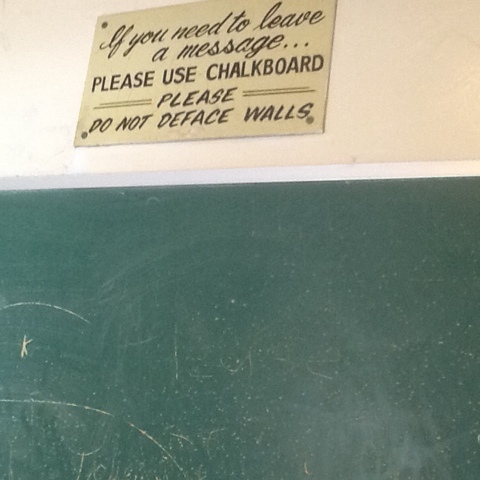 If you need to leave
a message...
PLEASE USE CHALKBOARD
PLEASE
DO NOT DEFACE WALLS
K